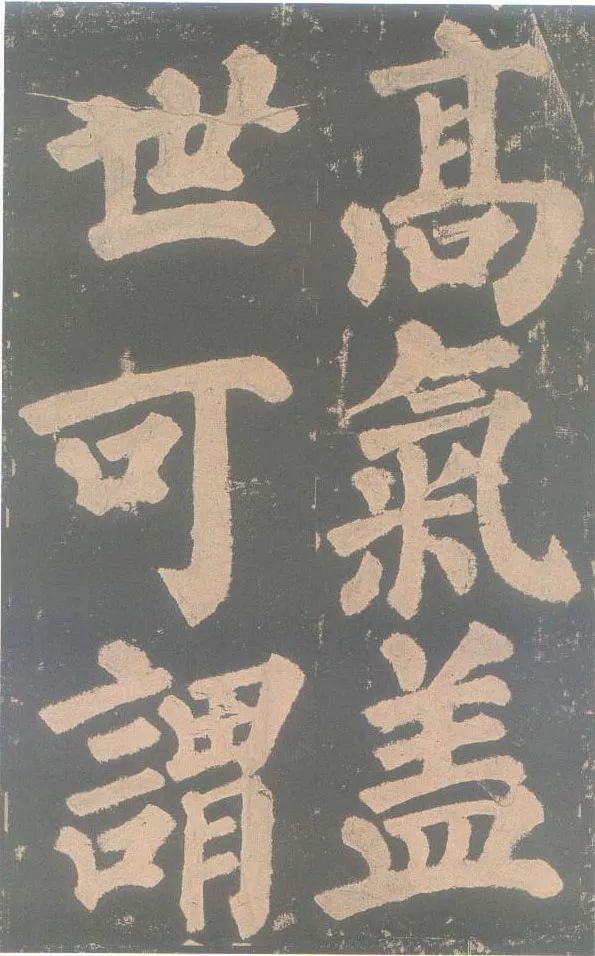 高氣盖
世可謂